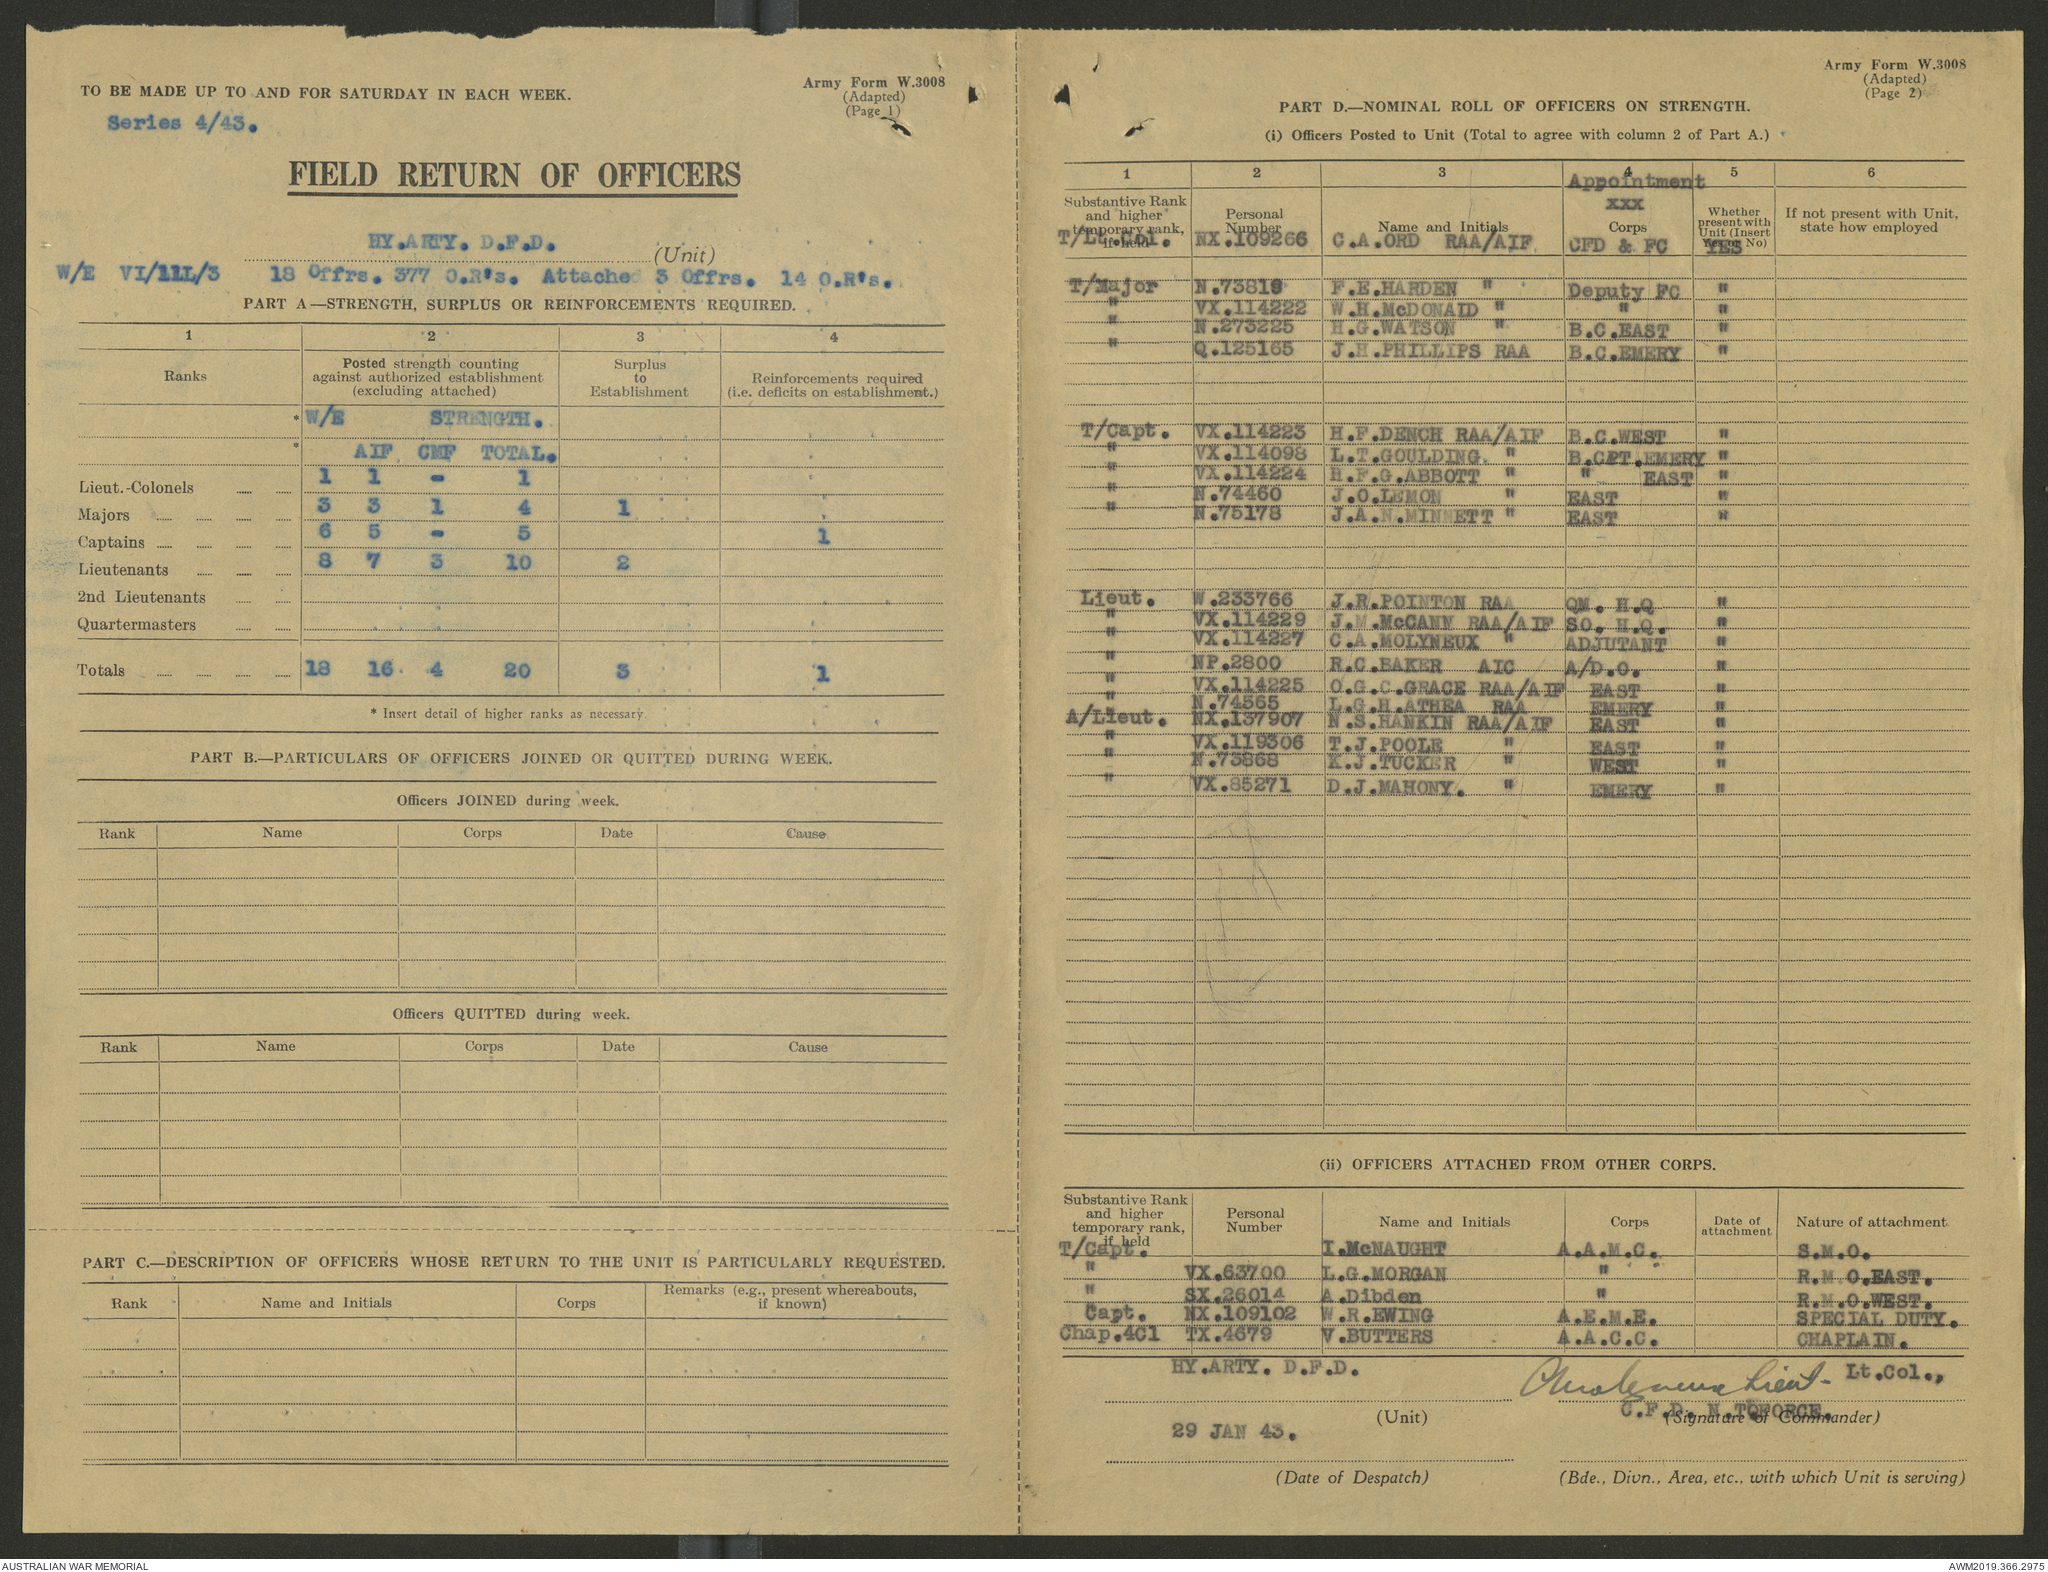 TO BE MADE UP TO AND FOR SATURDAY IN EACH WEEK.
Series 4/43.
Army Form W.3008
(Adapted)
(Page 1)
FIELD RETURN OF OFFICERS
HY.ARTY. D.F.D. (Unit)
W/E VI/11L/3 18 Offrs. 377 O.R's. Attached 3 Offrs. 14 O.R's.
PART A—STRENGTH, SURPLUS OR REINFORCEMENTS REQUIRED.
1 2 3 4
Ranks
Posted strength counting against authorized establishment (excluding attached)
Surplus to Establishment
Reinforcements required (i.e. deficits on establishment.)
* W/E STRENGTH.
* AIF CMF TOTAL.
Lieut.-Colonels 1 1 - 1
Majors 3 3 1 4 1
Captains 6 5 - 5 1
Lieutenants 8 7 3 10 2
2nd Lieutenants
Quartermasters
Totals 18 16 4 20 3 1
* Insert detail of higher ranks as necessary.
PART B.—PARTICULARS OF OFFICERS JOINED OR QUITTED DURING WEEK.
Officers JOINED during week.
Rank Name Corps Date Cause
Officers QUITTED during week.
Rank Name Corps Date Cause
PART C.—DESCRIPTION OF OFFICERS WHOSE RETURN TO THE UNIT IS PARTICULARLY REQUESTED.
Rank Name and Initials Corps Remarks (e.g., present whereabouts, if known)
Army Form W.3008
(Adapted)
(Page 2)
PART D.—NOMINAL ROLL OF OFFICERS ON STRENGTH.
(i) Officers Posted to Unit (Total to agree with column 2 of Part A.)
1 2 3 4 5 6
Substantive Rank and higher temporary rank, if held
Personal Number
Name and Initials
Appointment
xxx
Corps
Whether present with Unit (Insert Yes or No)
If not present with Unit, state how employed
T/Lt.Col. NX.109266 C.A.ORD RAA/AIF CFD & FC YES
T/Major N.73819 F.E.HARDEN " Deputy FC "
" VX.114222 W.H.McDONAID " " "
" N.273225 H.G.WATSON " B.C.EAST "
" Q.125165 J.H.PHILLIPS RAA B.C.EMERY "
T/Capt. VX.114223 H.F.DENCH RAA/AIF B.C.WEST "
" VX.114098 L.T.GOULDING. " B.CPT.EMERY "
" VX.114224 H.F.G.ABBOTT " " EAST "
" N.74460 J.O.LEMON " EAST "
" N.75178 J.A.N.MINNETT " EAST "
Lieut. W.233766 J.R.POINTON RAA QM. H.Q "
" VX.114229 J.M.McCANN RAA/AIF SO. H.Q. "
" VX.114227 C.A.MOLYNEUX " ADJUTANT "
" NP.2800 R.C.BAKER AIC A/D.O. "
" VX.114225 O.G.C.GRACE RAA/AIF EAST "
" N.74565 L.G.H.ATHEA RAA EMERY "
A/Lieut. NX.137907 N.S.HANKIN RAA/AIF EAST "
" VX.119306 T.J.POOLE " EAST "
" N.73868 K.J.TUCKER " WEST "
" VX.85271 D.J.MAHONY. " EMERY "
(ii) OFFICERS ATTACHED FROM OTHER CORPS.
Substantive Rank and higher temporary rank, if held
Personal Number
Name and Initials
Corps
Date of attachment
Nature of attachment
T/Capt. I.McNAUGHT A.A.M.C. S.M.O.
" VX.63700 L.G.MORGAN " R.M.O.EAST.
" SX.26014 A.Dibden " R.M.O.WEST.
Capt. NX.109102 W.R.EWING A.E.M.E. SPECIAL DUTY.
Chap.4Cl TX.4679 V.BUTTERS A.A.C.C. CHAPLAIN.
HY.ARTY. D.F.D.
(Unit)
CMolyneux Lieut- Lt.Col.,
C.F.D. N.TOFORCE.
(Signature of Commander)
29 JAN 43.
(Date of Despatch)
(Bde., Divn., Area, etc., with which Unit is serving)
AUSTRALIAN WAR MEMORIAL
AWM2019.366.2975